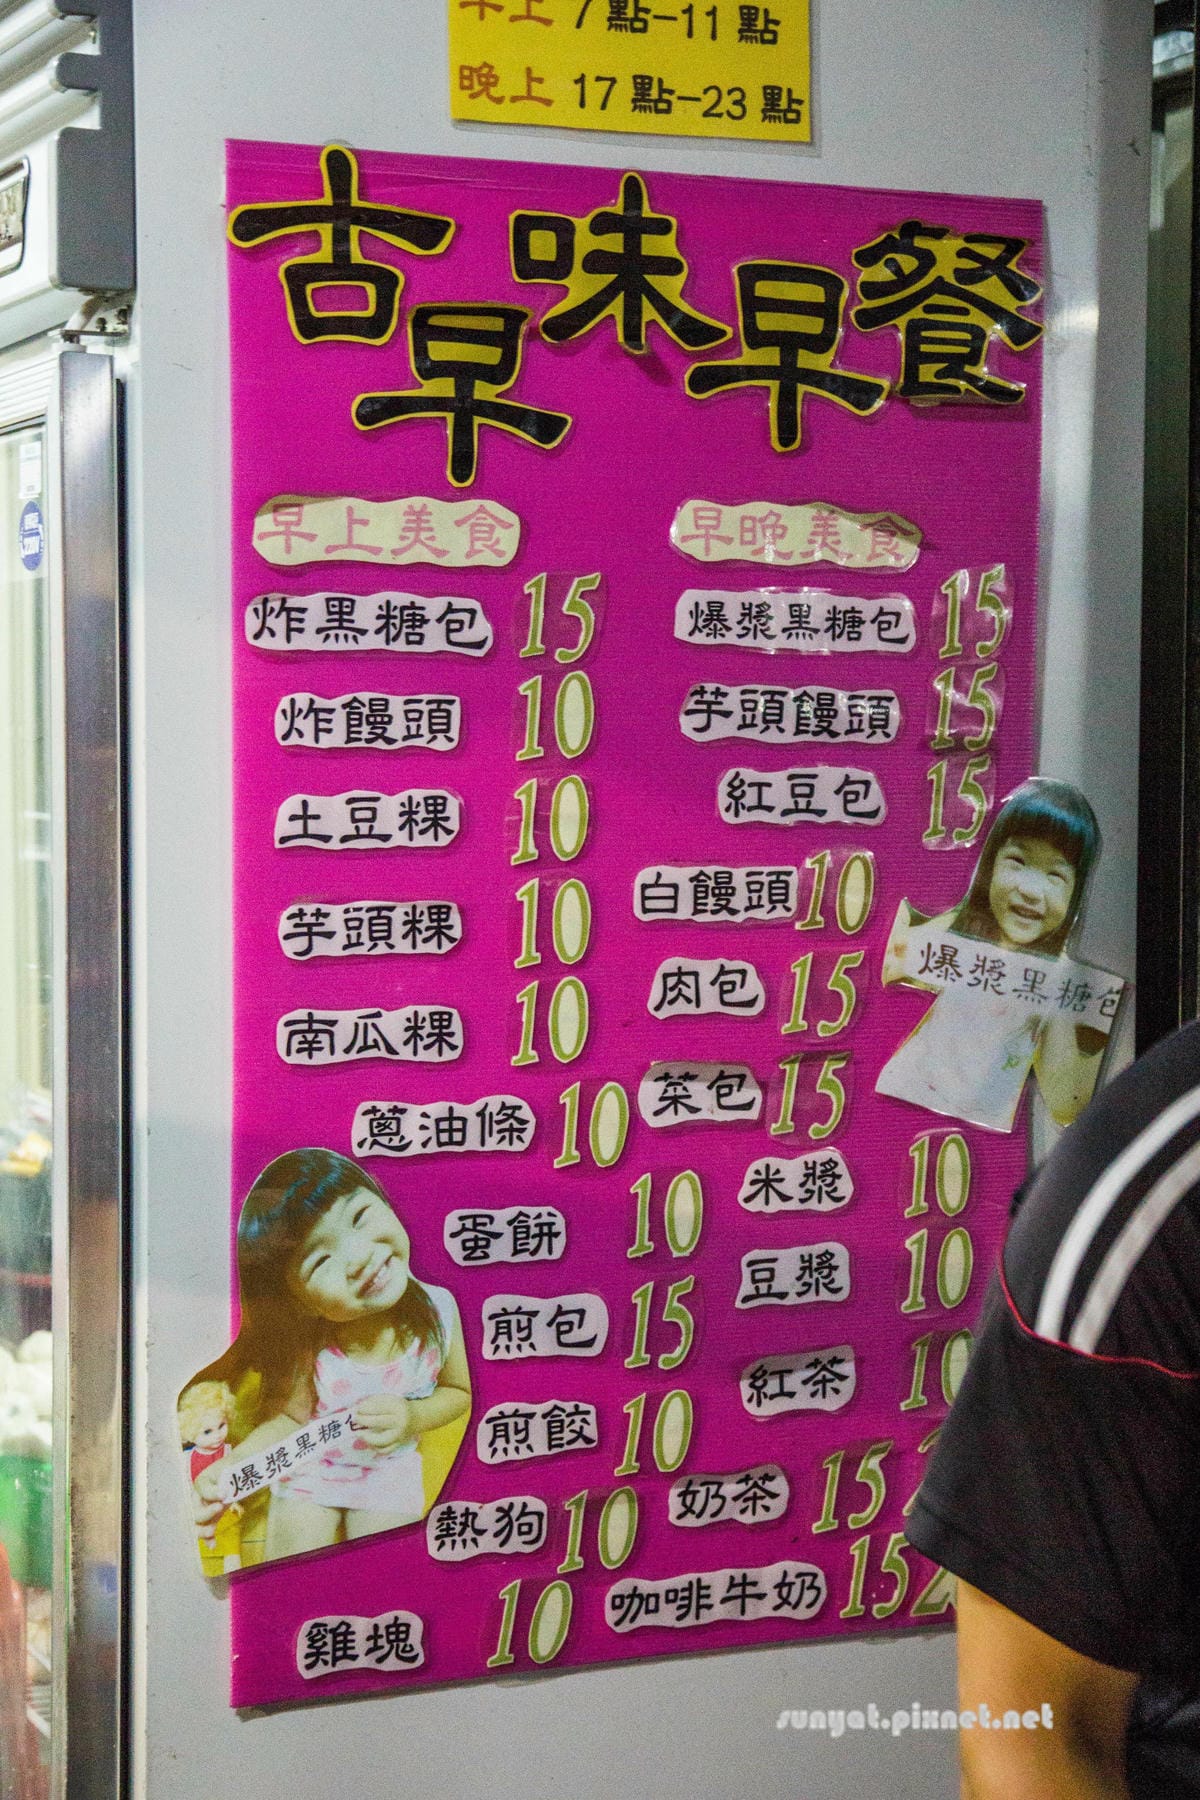 早上 7 點-11 點
晚上 17 點-23 點
古早味早餐
早上美食
炸黑糖包 15
炸饅頭 10
土豆粿 10
芋頭粿 10
南瓜粿 10
蔥油條 10
蛋餅 10
煎包 15
煎餃 10
熱狗 10
雞塊 10
早晚美食
爆漿黑糖包 15
芋頭饅頭 15
紅豆包 15
白饅頭 10
肉包 15
菜包 15
米漿 10
豆漿 10
紅茶 10
奶茶 15
咖啡牛奶 15
爆漿黑糖包
爆漿黑糖
sunyat.pixnet.net